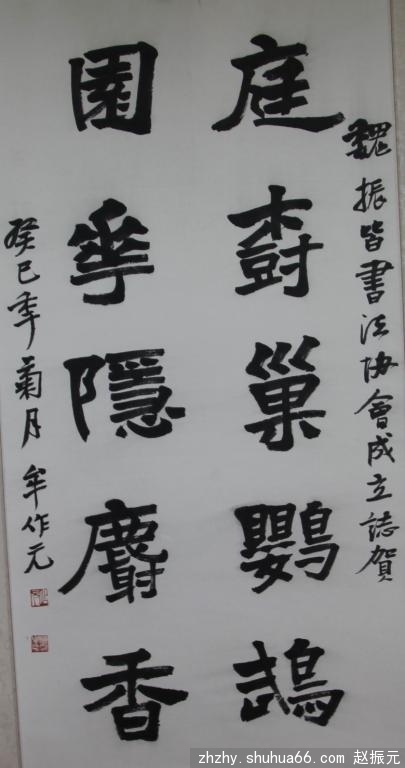 魏振皆書法協會成立誌賀
庭樹巢鸚鵡
園華隱麝香
癸巳季菊月 牟作元
zhzhy.shuhua66.com 赵振元